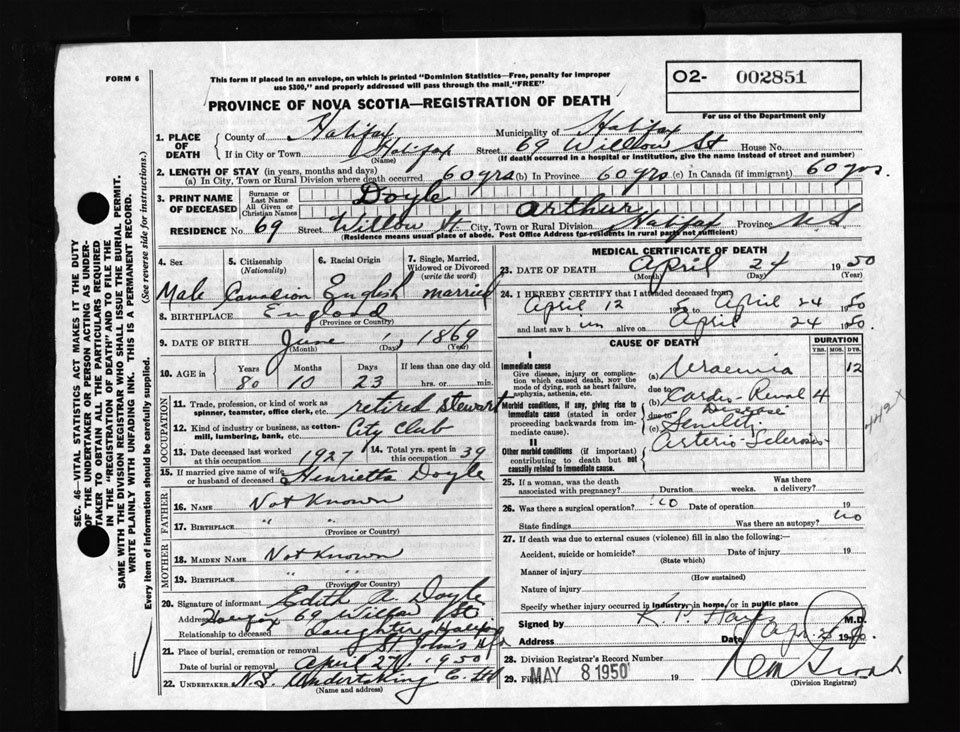 FORM 6
This form if placed in an envelope, on which is printed "Dominion Statistics—Free, penalty for improper
use $300," and properly addressed will pass through the mail "FREE"
O2- 002851
For use of the Department only
PROVINCE OF NOVA SCOTIA—REGISTRATION OF DEATH
1. PLACE OF DEATH
County of Halifax Municipality of Halifax
If in City or Town Halifax Street 69 Willow St House No.
(Name) (If death occurred in a hospital or institution, give the name instead of street and number)
2. LENGTH OF STAY (in years, months and days)
(a) In City, Town or Rural Division where death occurred 60 yrs (b) In Province 60 yrs (c) In Canada (if immigrant) 60 yrs.
3. PRINT NAME OF DECEASED
Surname or Last Name Doyle
All Given or Christian Names Arthur
RESIDENCE No. 69 Street Willow St. City, Town or Rural Division Halifax Province N.S
(Residence means usual place of abode. Post Office Address for residents in rural parts not sufficient)
4. Sex
5. Citizenship (Nationality)
6. Racial Origin
7. Single, Married, Widowed or Divorced (write the word)
Male Canadian English married
8. BIRTHPLACE England
(Province or Country)
9. DATE OF BIRTH June 1, 1869
(Month) (Day) (Year)
10. AGE in Years Months Days If less than one day old
80 10 23 hrs. or min.
OCCUPATION
11. Trade, profession, or kind of work as
spinner, teamster, office clerk, etc. retired stewart
12. Kind of industry or business, as cotton-
mill, lumbering, bank, etc. City Club
13. Date deceased last worked at this occupation 1927
14. Total yrs. spent in this occupation 39
15. If married give name of wife
or husband of deceased Henrietta Doyle
FATHER
16. NAME Not Known
17. BIRTHPLACE " "
(Province or Country)
MOTHER
18. MAIDEN NAME Not Known
19. BIRTHPLACE " "
(Province or Country)
20. Signature of informant Edith A. Doyle
Address 69 St
Relationship to deceased daughter Halifax
21. Place of burial, cremation or removal St John's
Date of burial or removal April 27, 1950
22. UNDERTAKER N.S. Undertaking Co. Ltd
(Name and address)
MEDICAL CERTIFICATE OF DEATH
23. DATE OF DEATH April 24 1950
(Month) (Day) (Year)
24. I HEREBY CERTIFY that I attended deceased from
April 12 April 24 1950
and last saw him alive on April 24 1950.
CAUSE OF DEATH
DURATION
YRS. MOS. DYS.
I
Immediate cause
Give disease, injury or complica-
tion which caused death, NOT the
mode of dying, such as heart failure,
asphyxia, asthenia, etc.
(a) Uraemia 12
due to
(b) Cardio-Renal Disease 4
Morbid conditions, if any, giving rise to
immediate cause (stated in order
proceeding backwards from im-
mediate cause).
due to
(c) Senility
II
Other morbid conditions (if important)
contributing to death but not
causally related to immediate cause.
Arterio Sclerosis
442 X
25. If a woman, was the death
associated with pregnancy? Duration weeks. Was there a delivery?
26. Was there a surgical operation? no Date of operation 19
State findings Was there an autopsy? no
27. If death was due to external causes (violence) fill in also the following:—
Accident, suicide or homicide? Date of injury 19
(State which)
Manner of injury
(How sustained)
Nature of injury
Specify whether injury occurred in industry, in home, or in public place
Signed by M.D.
Address Date
28. Division Registrar's Record Number
29. Filed MAY 8 1950 19
(Division Registrar)
SEC. 46—VITAL STATISTICS ACT MAKES IT THE DUTY
OF THE UNDERTAKER OR PERSON ACTING AS UNDER-
TAKER TO OBTAIN ALL THE PARTICULARS REQUIRED
IN THE "REGISTRATION OF DEATH" AND TO FILE THE
SAME WITH THE DIVISION REGISTRAR WHO SHALL ISSUE THE BURIAL PERMIT.
WRITE PLAINLY WITH UNFADING INK. THIS IS A PERMANENT RECORD.
Every item of information should be carefully supplied. (See reverse side for instructions.)